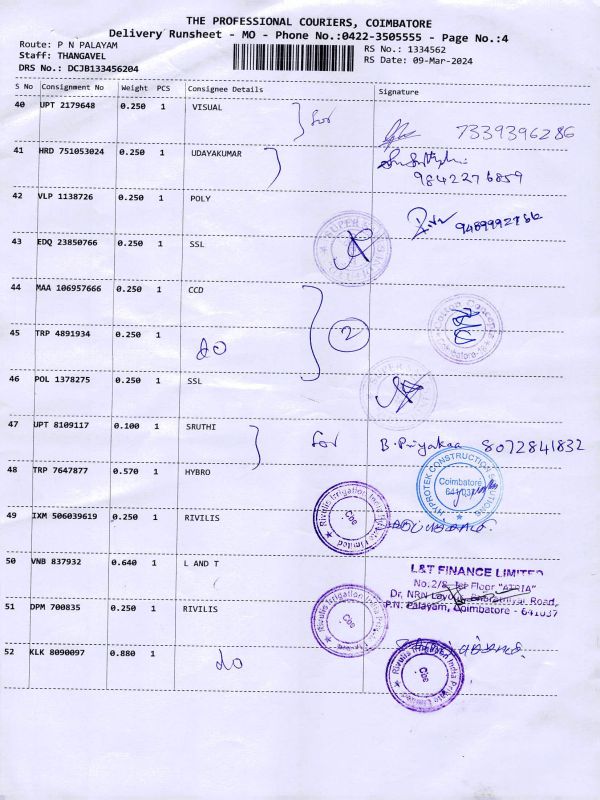 THE PROFESSIONAL COURIERS, COIMBATORE
Delivery Runsheet - MO - Phone No.:0422-3505555 - Page No.:4
Route: P N PALAYAM
RS No.: 1334562
Staff: THANGAVEL
RS Date: 09-Mar-2024
DRS No.: DCJB133456204
S No Consignment No Weight PCS Consignee Details Signature
40 UPT 2179648 0.250 1 VISUAL for
7339396286
41 HRD 751053024 0.250 1 UDAYAKUMAR
9842276859
42 VLP 1138726 0.250 1 POLY
43 EDQ 23850766 0.250 1 SSL
SUPER
44 MAA 106957666 0.250 1 CCD
2
45 TRP 4891934 0.250 1 do
Coimbatore
46 POL 1378275 0.250 1 SSL
SUPER
47 UPT 8109117 0.100 1 SRUTHI for B. Priyakaa 8072841832
48 TRP 7647877 0.570 1 HYBRO
HYPROTEK CONSTRUCTION SOLUTIONS
Coimbatore
641037
49 IXM 506039619 0.250 1 RIVILIS
Rivulis Irrigation India Private Limited
Cbe
50 VNB 837932 0.640 1 L AND T
L&T FINANCE LIMITED
No.2/8, 1st Floor "ATRIA"
Dr. NRN Layout, Bharathiyar Road,
P.N. Palayam, Coimbatore - 641037
51 DPM 700835 0.250 1 RIVILIS
Rivulis Irrigation India Private Limited
Cbe
52 KLK 8090097 0.880 1 do
Rivulis Irrigation India Private Limited
Cbe